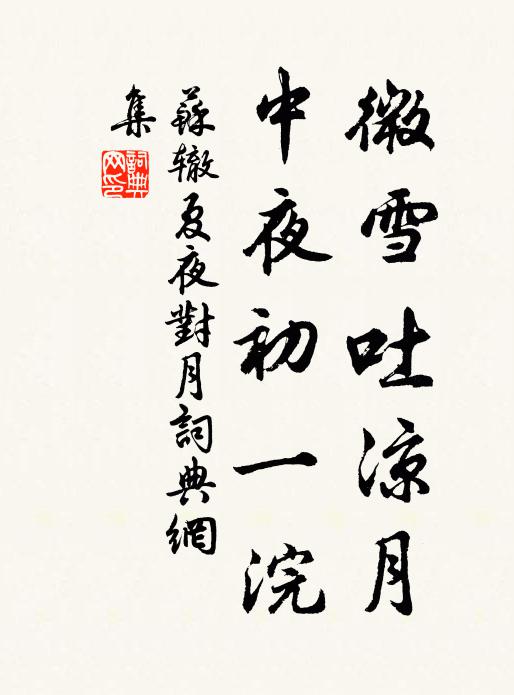 微雪吐涼月
中夜初一浣
蘇辙夏夜對月詞典網
集
詞典
网印